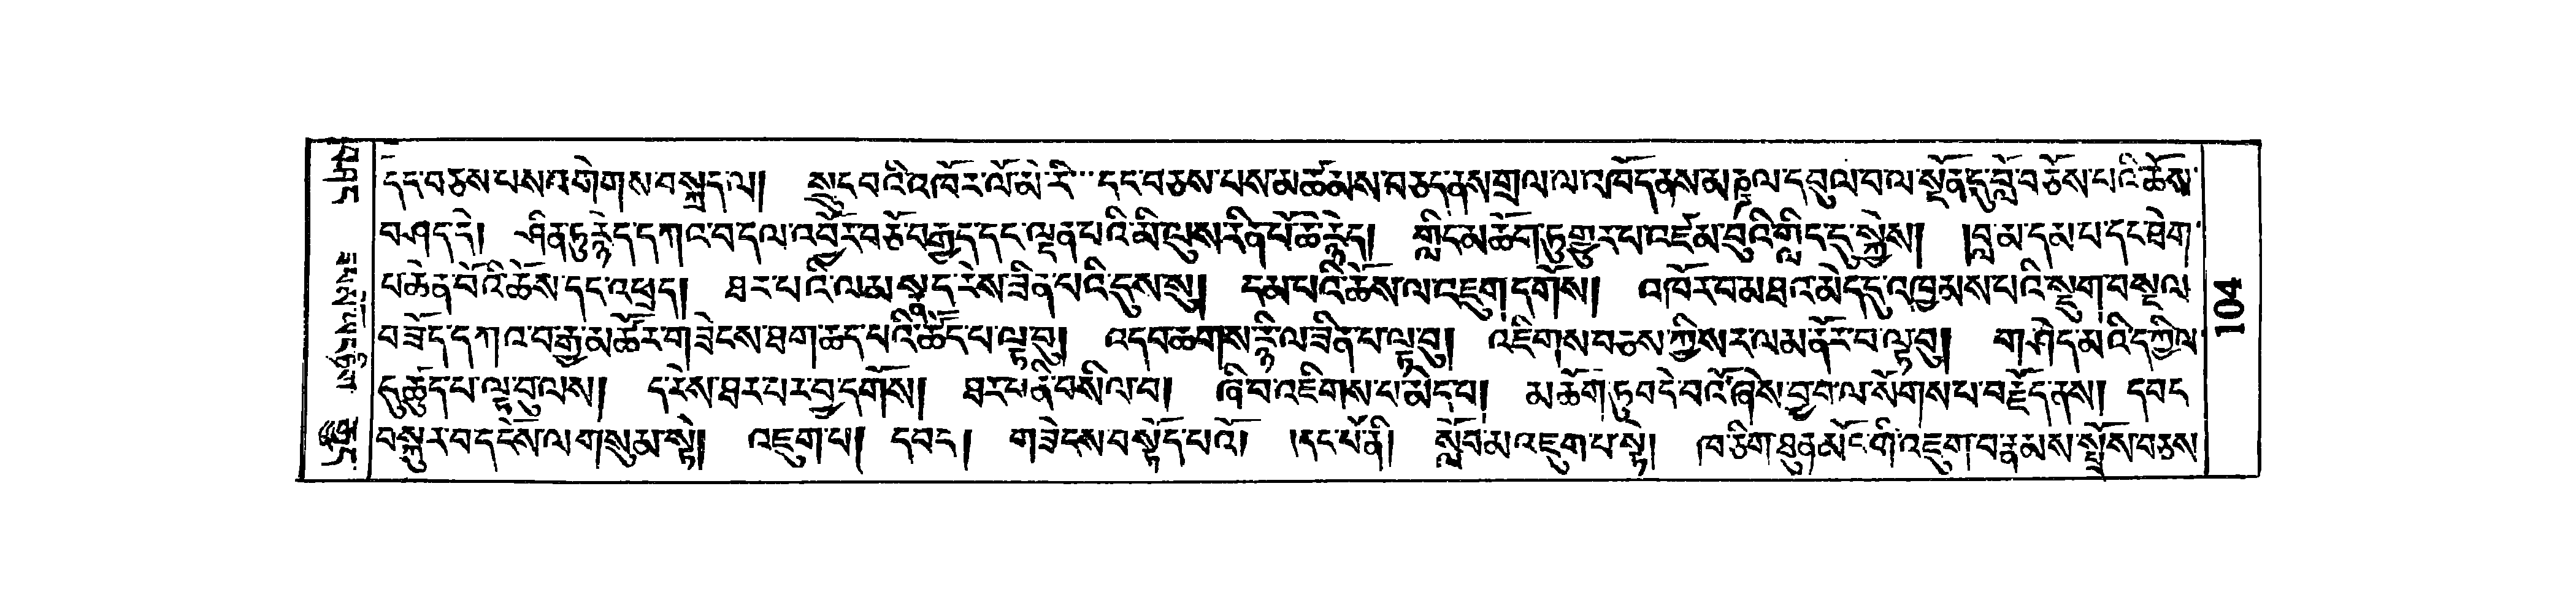 དང་བཅས་པས་བགེགས་བསྐྲད་ལ། སྲུང་བའི་འཁོར་ལོ་མེ་རི་དང་བཅས་པས་མཚམས་བཅད་ནས་གྲལ་ལ་འཁོད་ནས་མཎྜལ་དབུལ་བ་ལ་སྔོན་དུ་བློ་བཅོས་པའི་ཆོས་
བཤད་དེ། ཤིན་ཏུ་རྙེད་དཀའ་བ་དལ་འབྱོར་བཅོ་བརྒྱད་དང་ལྡན་པའི་མི་ལུས་རིན་པོ་ཆེ་རྙེད། གླིང་མཆོག་ཏུ་གྱུར་པ་འཛམ་བུའི་གླིང་དུ་སྐྱེས། །བླ་མ་དམ་པ་དང་ཐེག་
པ་ཆེན་པོའི་ཆོས་དང་འཕྲད། ཐར་པའི་ལམ་སྣ་ད་རེས་ཟིན་པའི་དུས་སུ། དམ་པའི་ཆོས་ལ་འཇུག་དགོས། འཁོར་བ་མཐའ་མེད་དུ་འཁྱམས་པའི་སྡུག་བསྔལ་
བཟོད་དཀའ་བ་རྒྱ་མཚོར་གཟིངས་ཐག་ཆད་པའི་ཚོང་པ་ལྟ་བུ། འདབ་ཆགས་རྙི་ལ་ཟིན་པ་ལྟ་བུ། འཇིགས་བཅས་ཀྱིས་ར་ལམ་ནོར་བ་ལྟ་བུ། གཤེད་མའི་དཀྱིལ་
དུ་ཚུད་པ་ལྟ་བུ་ལས། ད་རེས་ཐར་པར་བྱ་དགོས། ཐར་པ་ནི་བསིལ་བ། ཞི་བ་འཇིགས་པ་མེད་པ། མཆོག་ཏུ་བདེ་བའོ་ཞེས་བྱ་བ་ལ་སོགས་པ་བརྗོད་ནས། དབང་
བསྐུར་བ་དངོས་ལ་གསུམ་སྟེ། འཇུག་པ། དབང་། གཟེངས་བསྟོད་པའོ། །དང་པོ་ནི། སློབ་མ་འཇུག་པ་སྟེ། ཁ་ཅིག་ཐུན་མོང་གི་འཇུག་བ་རྣམས་སྤྲོས་བཅས་
401